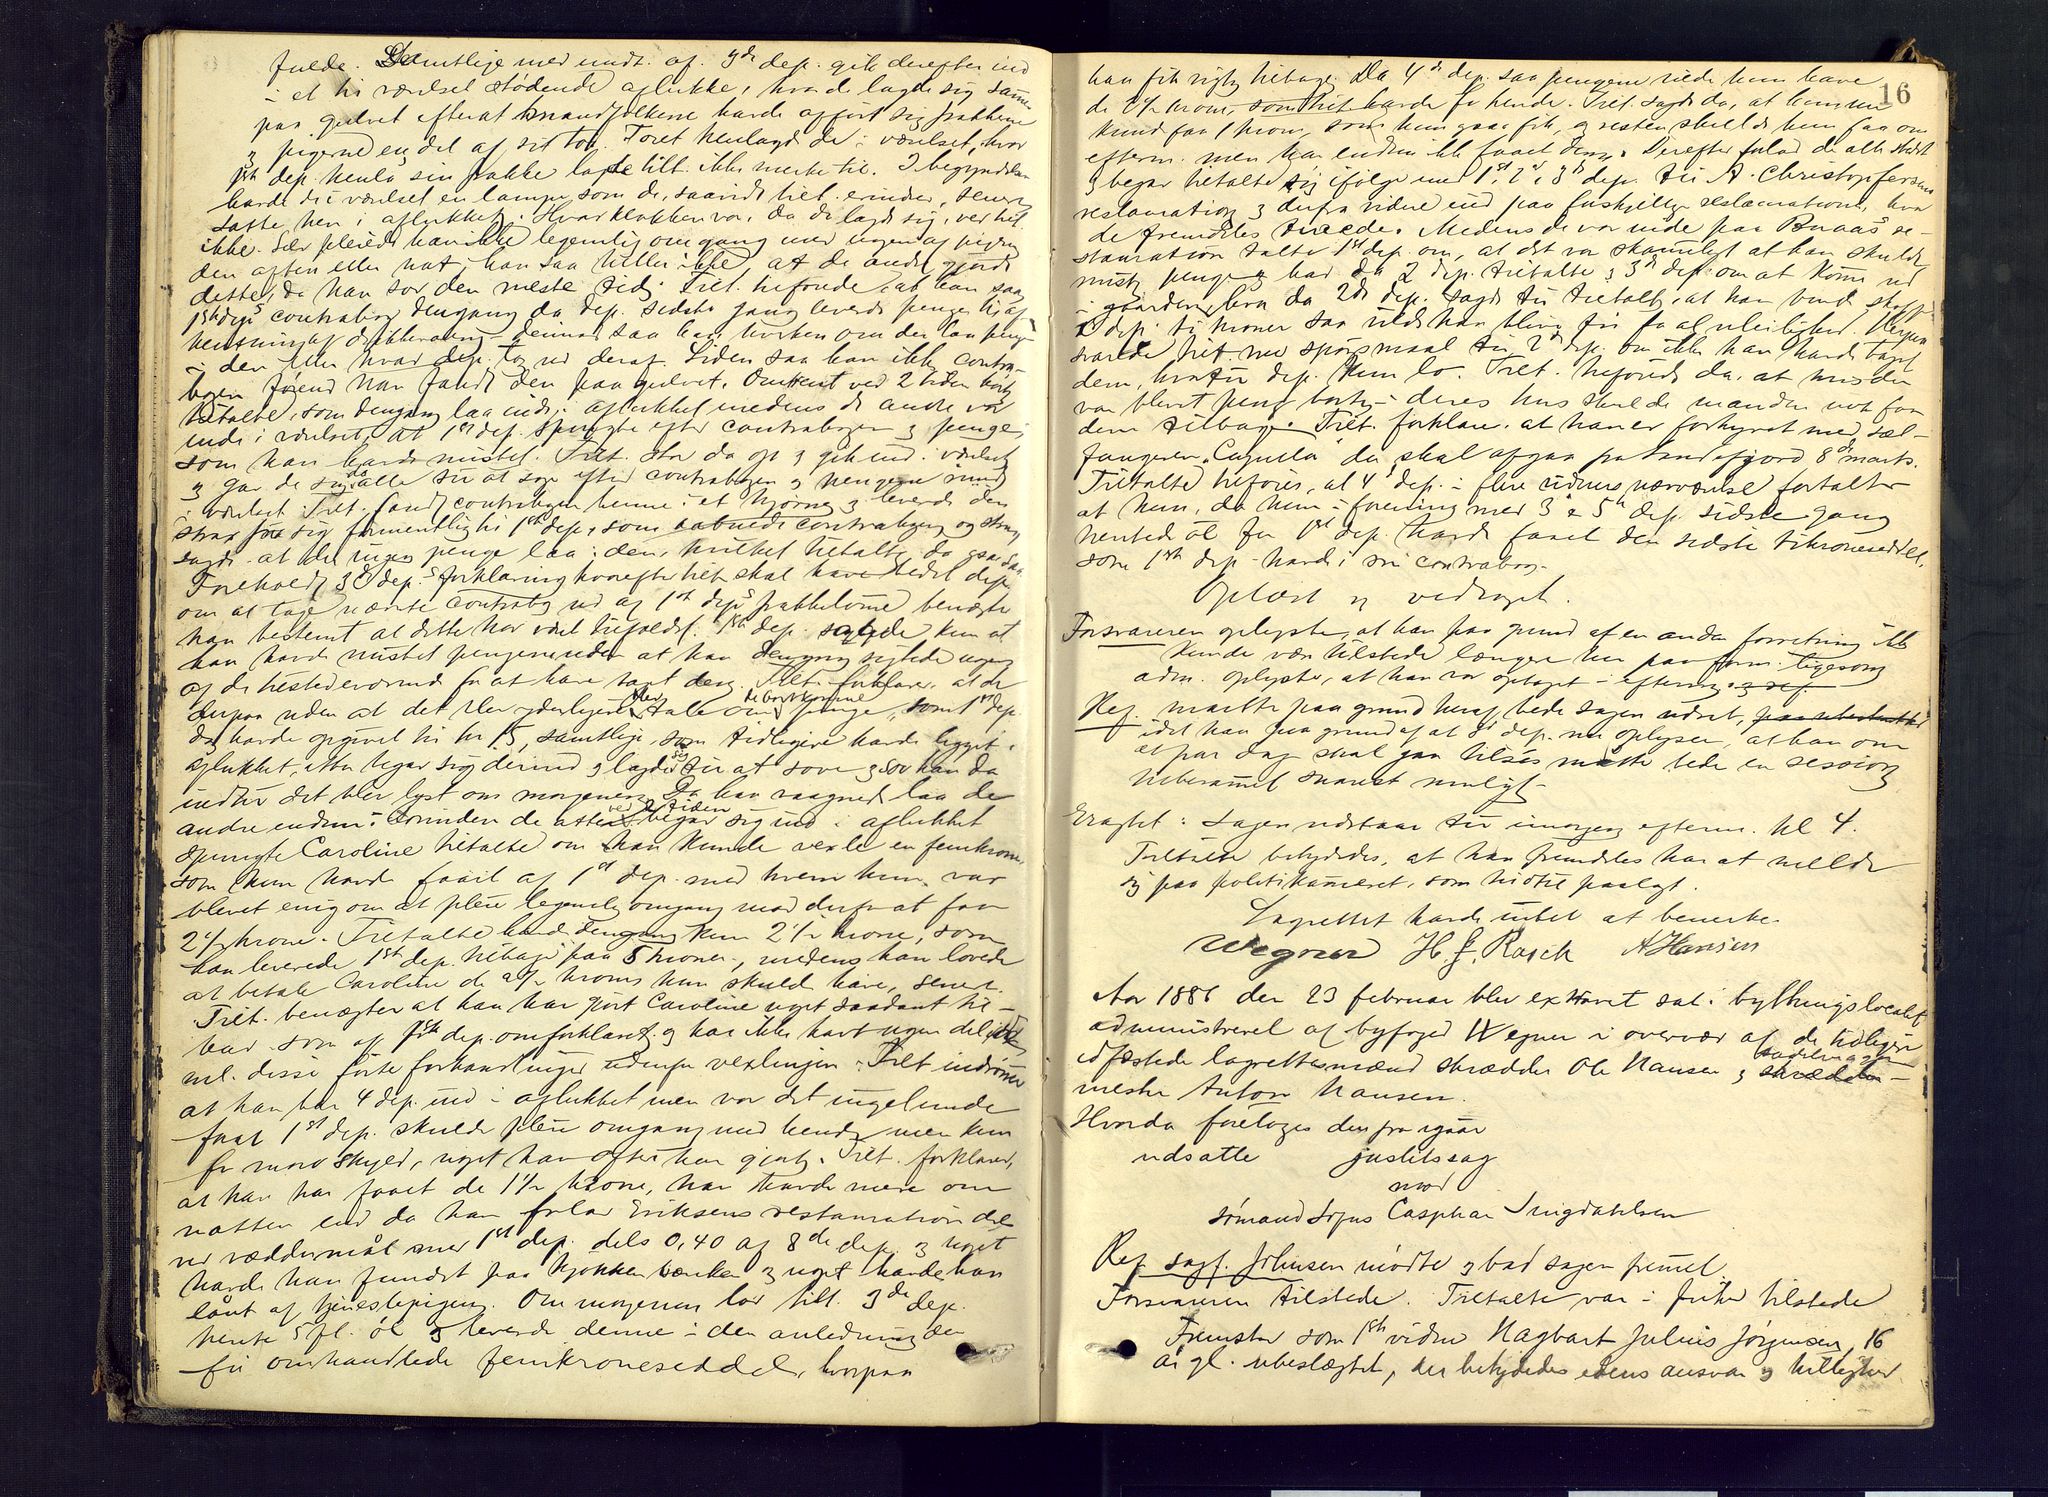 fulde. Samtlige med undt. af 3de dep. gik derefter ind
i et til værelset stødende aflukke, hvor de lagde sig sammen
paa gulvet efterat mandfolkene havde afført sig frakkerne
og pigerne en del af sit tøi. Tøiet henlagde de i værelset, hvor
1ste dep. henla sin frakke lagde tilt. ikke mærke til. I begyndelsen
havde de i værelset en lampe som de, saavidt tilt. erindrer, senere
satte hen i aflukket. Hvad klokken var, da de lagde sig, ved tilt.
ikke. Selv pleiede han ikke legemlig omgang med nogen af pigerne
den aften eller nat, han saa heller ikke, at de andre gjorde
dette, da han sov den meste tid. Tilt. tilføiede, at han saa
1ste dep's contrabog dengang da dep. sidste gang leverede penge til af
hentning af drikkevarer, derimod saa han hverken om der laa penge
i den eller hvad dep. tog ud deraf. Siden saa han ikke contra-
bogen førend han fandt den paa gulvet. Omtrent ved 2 tiden hørte
tiltalte, som dengang laa inde i aflukket medens de andre var
inde i værelset, at 1ste dep. spurgte efter contrabogen og penge,
som han havde mistet. Tilt. stod da op og gik ind i værelset
og gav de sig da alle til at søge efter contrabogen og pengene rundt
i værelset. Tilt. fandt contrabogen henne i et hjørne og leverede den
strax fra sig formentlig til 1ste dep., som aabnede contrabogen og strax
sagde at der ingen penge laa i den, hvilket tiltalte da ogsaa saa.
Foreholdt 3de dep.s forklaring hvorefter tilt. skal have bedet dep.
om at tage nævnte contrabog ud af 1ste dep's frakkelomme benægter
han bestemt at dette har været tilfældet. 1ste dep. sagde kun at
han havde mistet pengene uden at han dengang sigtede nogen
af de tilstedeværende for at have taget dem. Tilt. forklarer, at de
derpaa uden at det blev yderligere tale om de bortkomne penge, som 1ste dep.
da havde opgivet til kr 15, samtlige, som tidligere havde ligget i
aflukket, atter begav sig derind og lagde sig til at sove og sov han da
indtil det blev lyst om morgenen. Da han vaagnede laa de
andre endnu. Forinden de atter ved 2 tiden begav sig ind i aflukket
spurgte Caroline tiltalte om han kunde vexle en femkrone
som hun havde faaet af 1ste dep. med hvem hun var
blevet enig om at pleie legemlig omgang mod derfor at faa
2½ krone. Tiltalte havde dengang kun 2½ krone, som
han leverede 1ste dep. tilbage paa 5 kroner, medens han lovede
at betale Caroline de 2½ krone hun skulde have, senere.
Tilt. benægter at han har gjort Caroline noget saadant til-
bud som af 1ste dep. omforklaret og har ikke havt nogen del
ml. disse førte forhandlinger udenfor vexlingen. Tilt. indrømmer
at han bar 4 dep. ind i aflukket men var det ingelunde
forat 1ste dep. skulde pleie omgang med hende men kun
for moro skyld, noget han ofte har gjort. Tilt. forklarer,
at han har faaet de 1½ krone, han havde mere om
natten end da han forlod Eriksens restauration dels
ved væddemaal med 1ste dep. dels 0,40 af 8de dep. og noget
havde han fundet paa kjøkkenbænken og noget havde han
laant af tjenestepigen. Om morgenen lod tilt. 3de dep.
hente 5 fl. øl og leverede denne i den anledning den
før omhandlede femkroneseddel, hvorpaa
16
han fik rigtig tilbage. Da 4de dep. saa pengene vilde hun have
de 2½ krone, som tilt. havde fra hende. Tilt. sagde da, at hun nu
kunde faa 1 krone, som hun ogsaa fik, og resten skulde hun faa om
efterm. men har endnu ikke faaet dem. Derefter forlod de alle stedet
og begav tiltalte sig ifølge med 1ste, 2de, 3de dep. til A. Christophersens
restauration og derfra videre ind paa forskjellige restaurationer, hvor
de fremdeles turede. Medens de var inde paa Braaes re-
stauration talte 1ste dep. om, at det var skammeligt at han skulde
miste penge og bad da 2 dep. tiltalte og 3de dep. om at komme ud
i gaarden, hvor da 2de dep. sagde til tiltalte, at han burde skaffe
1 dep. ti kroner saa vilde han blive fri for al uleilighed. Herpaa
svarede tilt. med spørsmaal til 2de dep. om ikke han havde taget
dem, hvortil dep. kun lo. Tilt. tilføiede da, at hvis der
var blevet penge borte i deres hus skulde manden nok faa
dem tilbage. Tilt. forklarer, at han er forhyret med sæl-
fangeren "Capella" der skal afgaa fra Sandefjord 8de marts.
Tiltalte tilføier, at 4de dep. i flere vidners nærværelse fortalte
at hun, da hun i forening med 3 & 5te dep. sidste gang
hentede øl for 1ste dep. havde faaet den sidste tikroneseddel,
som 1ste dep. havde i sin contrabog.
Oplæst og vedtaget.
Forsvareren oplyste, at han paa grund af en anden forretning ikke
kunde være tilstede længere nu paa form. ligesom
adm. oplyste, at han var optaget i efterm.
Ref. maatte paa grund heraf bede sagen udsat,
idet han paa grund af at 8de dep. nu oplyser, at han om
et par dag skal gaa tilsøs maatte bede en session
beramet snarest muligt.
Eragtet: Sagen udstaar til imorgen efterm. kl 4.
Tiltalte betydedes, at han fremdeles har at melde
sig paa politikameret, som hidtil paalagt.
Lagrettet havde intet at bemerke.
Wegner H. J. Rasch A Hansen
Aar 1886 den 23 februar blev extraret sat i bythingslocalet
administreret af byfoged Wegner i overvær af de tidligere
edfæstede lagrettesmænd skrædder Ole Hansen og sadelmager-
mester Anton Hansen.
Hvorda foretoges den fra igaar
udsatte justitssag
mod
sømand Sofus Casphar Ingdahlsen
Ref. sagf. Johnsen mødte og bad sagen fremet.
Forsvareren tilstede. Tiltalte var i frihed tilstede
Fremstod som 1ste vidne Hagbart Julius Jørgensen, 16
aar gl. ubeslægtet, der betydedes edens ansvar og hellighed